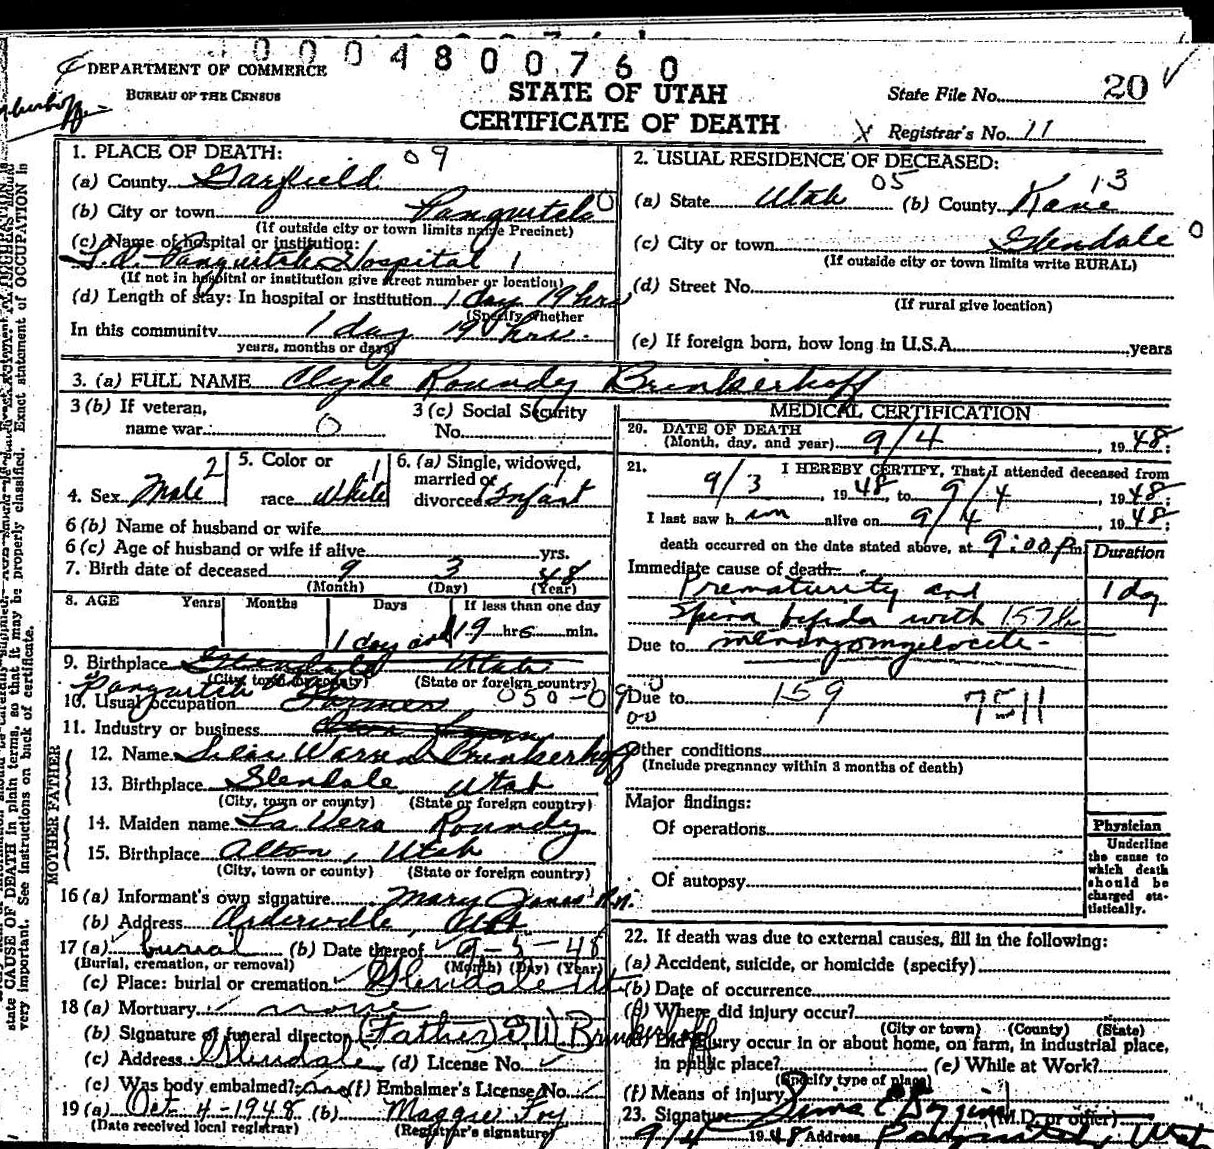 0004800760
DEPARTMENT OF COMMERCE
BUREAU OF THE CENSUS
STATE OF UTAH
CERTIFICATE OF DEATH
State File No. 20
Registrar's No. 11
1. PLACE OF DEATH: 09
(a) County Garfield
(b) City or town Panguitch 0
(If outside city or town limits name Precinct)
(c) Name of hospital or institution:
Panguitch Hospital 1
(If not in hospital or institution give street number or location)
(d) Length of stay: In hospital or institution 1 day 19 hrs
(Specify whether
In this community 1 day 19 hrs.
years, months or days)
2. USUAL RESIDENCE OF DECEASED:
(a) State Utah 05 (b) County Kane 13
(c) City or town Glendale 0
(If outside city or town limits write RURAL)
(d) Street No.
(If rural give location)
(e) If foreign born, how long in U.S.A. years
3. (a) FULL NAME Clyde Roundy Brinkerhoff
3 (b) If veteran,
name war 0
3 (c) Social Security
No.
4. Sex Male 2
5. Color or
race White 1
6. (a) Single, widowed,
married or
divorced Infant
6 (b) Name of husband or wife
6 (c) Age of husband or wife if alive yrs.
7. Birth date of deceased 9 3 48
(Month) (Day) (Year)
8. AGE Years Months Days If less than one day
1 day and 19 hrs min.
9. Birthplace Glendale Utah
(City, town or county) (State or foreign country)
Panguitch
10. Usual occupation 050-09
11. Industry or business
12. Name Silas Warren D Brinkerhoff
13. Birthplace Glendale Utah
(City, town or county) (State or foreign country)
14. Maiden name La Vera Roundy
15. Birthplace Alton, Utah
(City, town or county) (State or foreign country)
FATHER
MOTHER
16 (a) Informant's own signature Mary Jones R.N.
(b) Address Orderville, Utah
17 (a) burial (b) Date thereof 9-5-48
(Burial, cremation, or removal) (Month) (Day) (Year)
(c) Place: burial or cremation Glendale Ut
18 (a) Mortuary none
(b) Signature of funeral director (Father) S W Brinkerhoff
(c) Address Glendale (d) License No.
(e) Was body embalmed? no (f) Embalmer's License No.
19 (a) Oct 4-1948 (b) Maggie Foy
(Date received local registrar) (Registrar's signature)
MEDICAL CERTIFICATION
20. DATE OF DEATH
(Month, day, and year) 9/4, 1948;
21. I HEREBY CERTIFY, That I attended deceased from
9/3, 1948, to 9/4, 1948;
I last saw him alive on 9/4, 1948;
death occurred on the date stated above, at 9:00 Pm
Duration
Immediate cause of death
Prematurity and 1 day
Spina bifida with 157h
Due to meningomyelocele
Due to 159 7511
Other conditions
(Include pregnancy within 3 months of death)
Major findings:
Of operations
Of autopsy
Physician
Underline
the cause to
which death
should be
charged sta-
tistically.
22. If death was due to external causes, fill in the following:
(a) Accident, suicide, or homicide (specify)
(b) Date of occurrence
(c) Where did injury occur?
(City or town) (County) (State)
(d) Did injury occur in or about home, on farm, in industrial place,
in public place? (e) While at Work?
(Specify type of place)
(f) Means of injury
23. Signature Sims E Duggins (M.D. or other)
9/4 1948 Address Panguitch, Utah
state CAUSE OF DEATH in plain terms, so that it may be properly classified. Exact statement of OCCUPATION is
very important. See instructions on back of certificate.